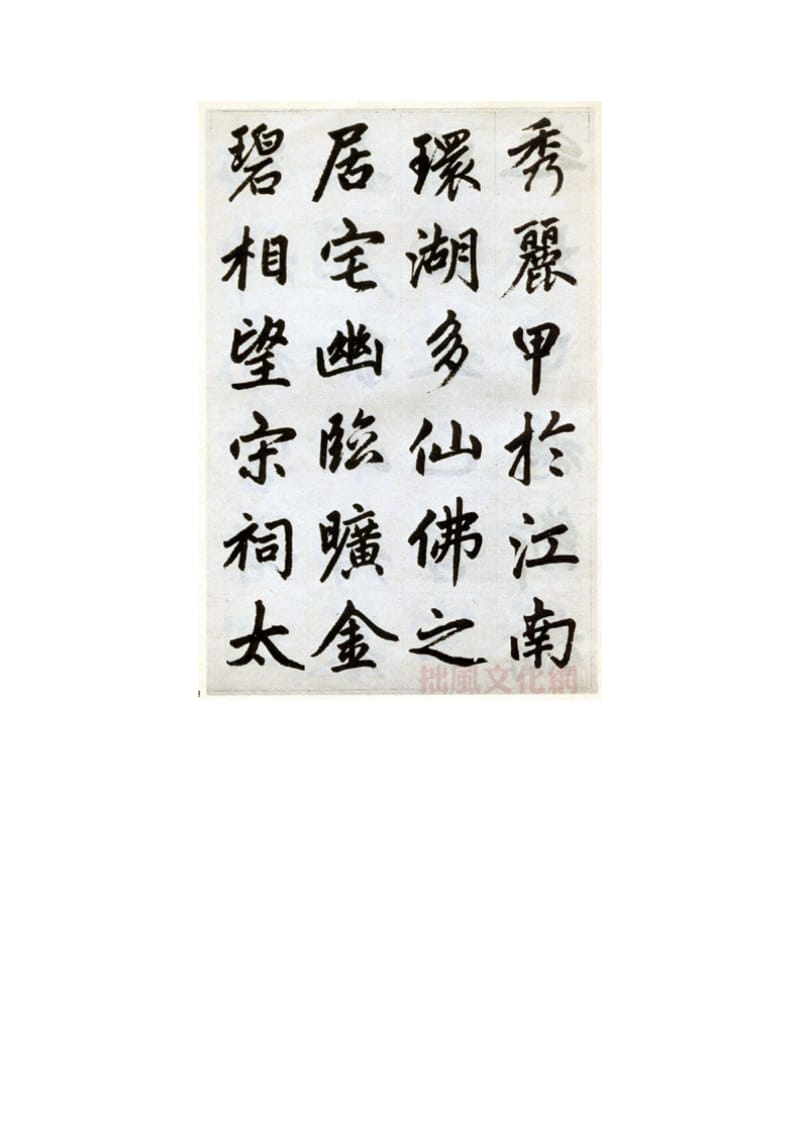 秀麗甲於江南
環湖多仙佛之
居宅幽臨曠金
碧相望宋祠太
拙風文化網